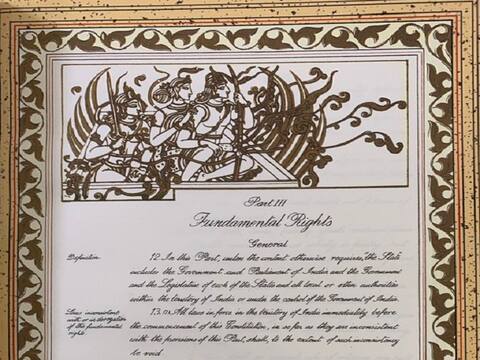 Part III
Fundamental Rights
General
Definition.
12. In this Part, unless the context otherwise requires, "the State"
includes the Government and Parliament of India and the Government
and the Legislature of each of the States and all local or other authorities
within the territory of India or under the control of the Government of India.
Laws inconsistent
with or in derogation
of the fundamental
rights.
13. (1) All laws in force in the territory of India immediately before
the commencement of this Constitution, in so far as they are inconsistent
with the provisions of this Part, shall, to the extent of such inconsistency
be void.